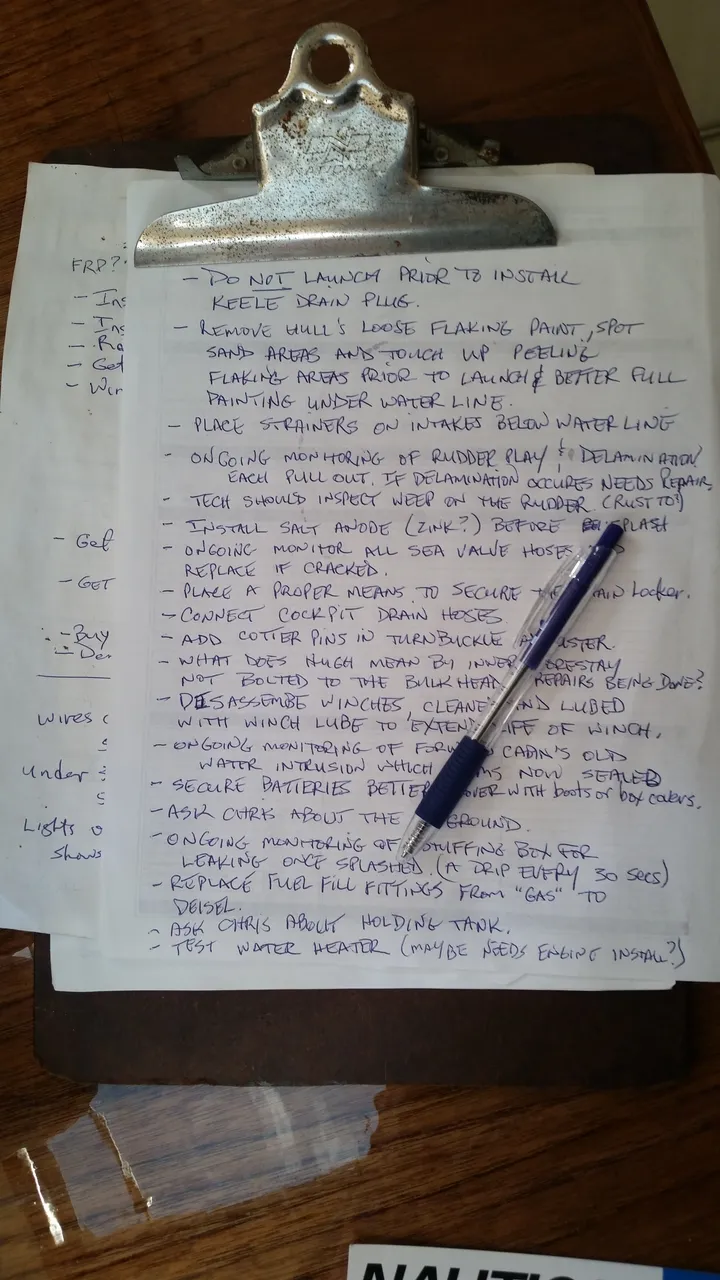 FRP?
- Ins
- I
- Ro
- Get
- Win
- Get
- GET
- Buy
- Der
wires c
under
Lights o
shows
- DO NOT LAUNCH PRIOR TO INSTALL
KEELE DRAIN PLUG.
- REMOVE HULL'S LOOSE FLAKING PAINT, SPOT
SAND AREAS AND TOUCH UP PEELING
FLAKING AREAS PRIOR TO LAUNCH & BETTER FULL
PAINTING UNDER WATER LINE.
- PLACE STRAINERS ON INTAKES BELOW WATER LINE
- ONGOING MONITORING OF RUDDER PLAY & DELAMINATION
EACH PULL OUT. IF DELAMINATION OCCURES NEEDS REPAIR.
- TECH SHOULD INSPECT WEEP ON THE RUDDER (RUST TO?)
- INSTALL SALT ANODE (ZINK?) BEFORE SPLASH
- ONGOING MONITOR ALL SEA VALVE HOSES
REPLACE IF CRACKED.
- PLACE A PROPER MEANS TO SECURE THE Locker.
- CONNECT COCKPIT DRAIN HOSES.
- ADD COTTER PINS IN TURNBUCKLE
- WHAT DOES HUGH MEAN BY INNER FORESTAY
NOT BOLTED TO THE BULKHEAD REPAIRS BEING DONE?
- DISASSEMBE WINCHES, CLEANED AND LUBED
WITH WINCH LUBE TO EXTEND LIFE OF WINCH.
- ONGOING MONITORING OF FORWARD CABIN'S OLD
WATER INTRUSION WHICH NOW SEALED
- SECURE BATTERIES BETTER COVER WITH boots or box covers.
- ASK CHRIS ABOUT THE GROUND.
- ONGOING MONITORING OF STUFFING BOX FOR
LEAKING ONCE SPLASHED. (A DRIP EVERY 30 SECS)
- REPLACE FUEL FILL FITTINGS FROM "GAS" TO
DEISEL.
- ASK CHRIS ABOUT HOLDING TANK.
- TEST WATER HEATER (MAYBE NEEDS ENGINE INSTALL?)